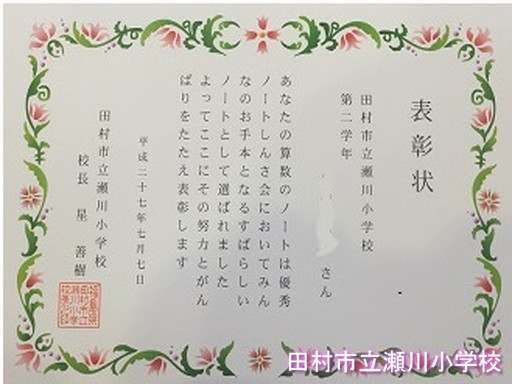 表彰状
田村市立瀬川小学校
第二学年
さん
あなたの算数のノートは優秀
ノートしんさ会においてみん
なのお手本となるすばらしい
ノートとして選ばれました
よってここにその努力とがん
ばりをたたえ表彰します
平成二十七年七月七日
田村市立瀬川小学校
校長 星 善樹
田村市立瀬川小学校